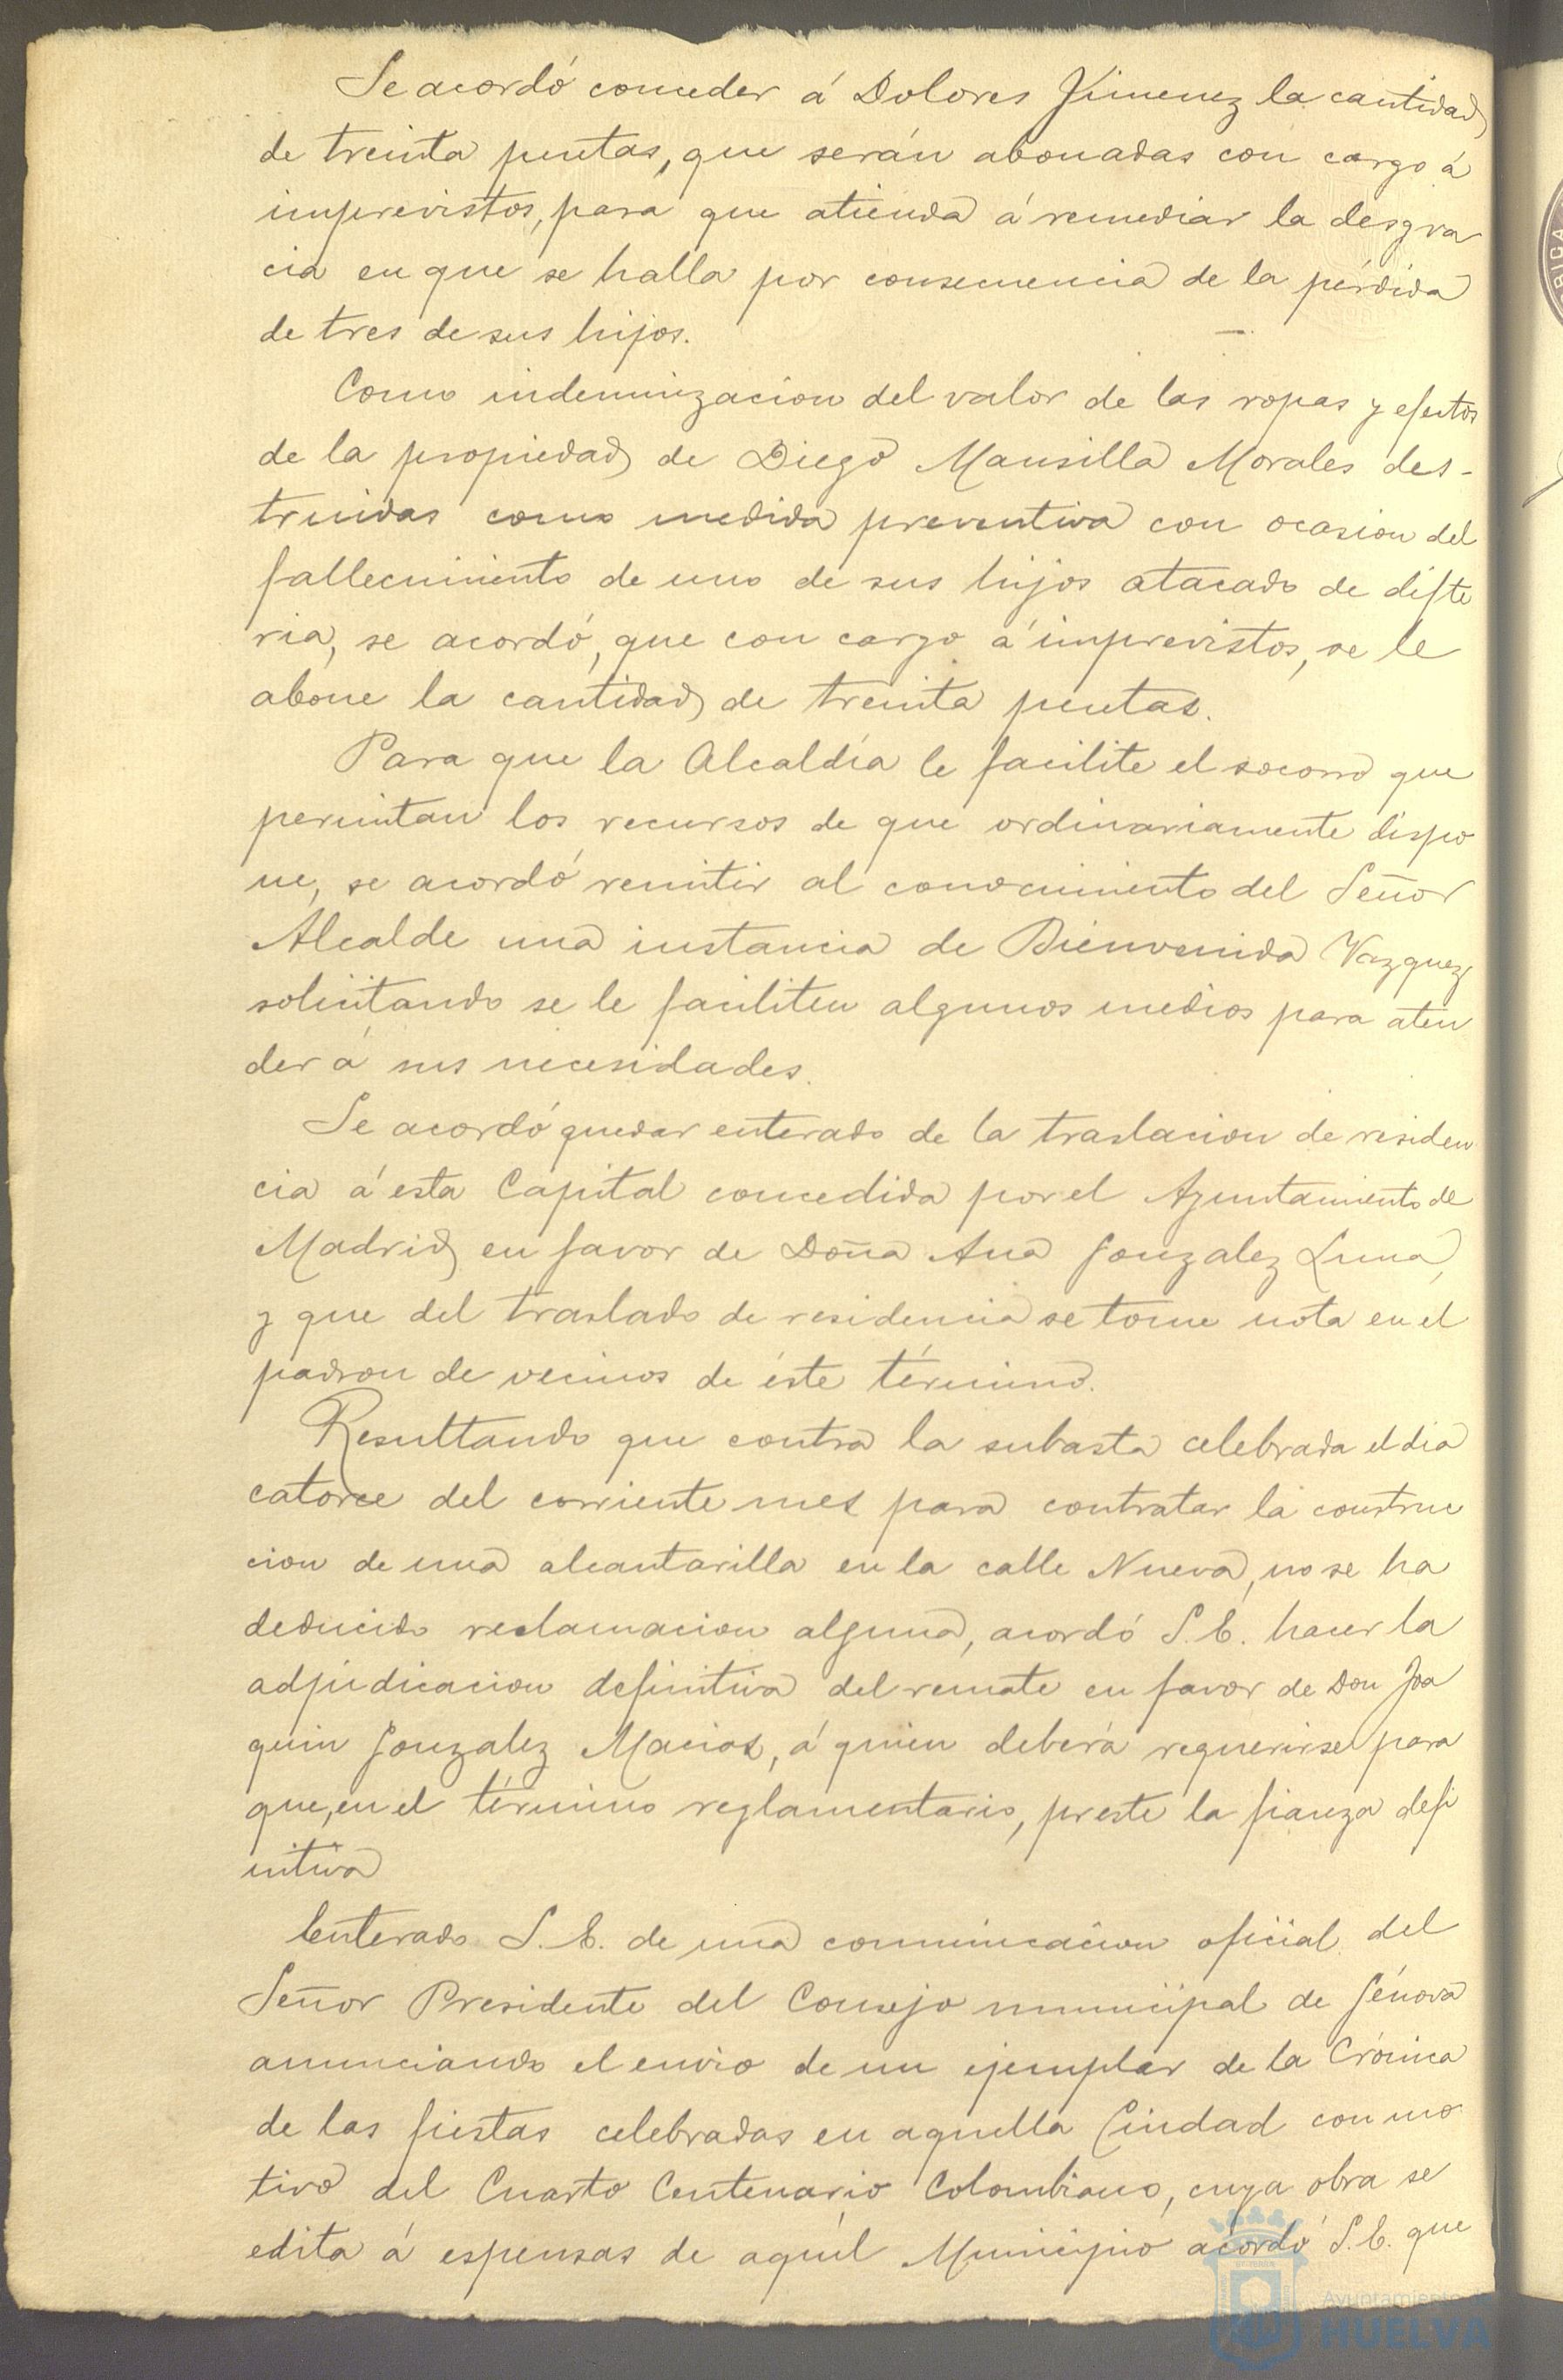 Se acordó conceder á Dolores Jimenez la cantidad
de treinta pesetas, que serán abonadas con cargo á
imprevistos, para que atienda á remediar la desgra
cia en que se halla por consecuencia de la pérdida
de tres de sus hijos.
Como indemnizacion del valor de las ropas y efectos
de la propiedad de Diego Mansilla Morales des-
truidas como medida preventiva con ocasion del
fallecimiento de uno de sus hijos atacado de difte
ria, se acordó, que con cargo á imprevistos, se le
abone la cantidad de treinta pesetas.
Para que la Alcaldía le facilite el socorro que
permitan los recursos de que ordinariamente dispo
ne, se acordó remitir al conocimiento del Señor
Alcalde una instancia de Bienvenida Vazquez
solicitando se le faciliten algunos medios para aten
der á sus necesidades.
Se acordó quedar enterado de la traslacion de residen
cia á esta Capital concedida por el Ayuntamiento de
Madrid en favor de Doña Ana Gonzalez Luna,
y que del traslado de residencia se tome nota en el
padron de vecinos de éste término.
Resultando que contra la subasta celebrada el dia
catorce del corriente mes para contratar la construc
cion de una alcantarilla en la calle Nueva, no se ha
deducido reclamacion alguna, acordó S.E. hacer la
adjudicacion definitiva del remate en favor de Don Joa
quin Gonzalez Macias, á quien deberá requerirse para
que, en el término reglamentario, preste la fianza defi
nitiva
Enterado S.E. de una comunicacion oficial del
Señor Presidente del Consejo municipal de Génova
anunciando el envio de un ejemplar de la Crónica
de las fiestas celebradas en aquella Ciudad con mo
tivo del Cuarto Centenario Colombiano, cuya obra se
edita á espensas de aquel Municipio acordó S.E. que
Ayuntamiento
HUELVA